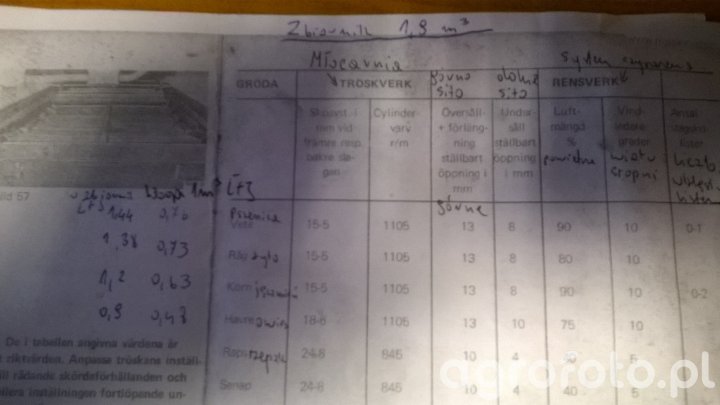 Zbiornik 1,9 m³
Młocarnia
górne sito
dolne sito
GRÖDA
TRÖSKVERK
RENSVERK
Skoavst. i mm vid främre resp. bakre slagen
Cylindervarv r/m
Översåll + förlängning ställbart öppning i mm
Undersåll ställbart öppning i mm
Luftmängd %
Vindledare grader
Antal
powietrze
wiatru stopni
liczba
górne
ild 57
[t]
1,44
1,38 0,73
1,2 0,63
0,9 0,48
Pszenica
Vete 15-5 1105 13 8 90 10 0-1
Råg żyto 15-5 1105 13 8 80 10
Korn jęczmień 15-5 1105 13 8 90 10 0-2
Havre owies 18-6 1105 13 10 75 10
Raps rzepak 24-8 845 10 4 5
Senap 24-8 845 10 4 40 5
De i tabellen angivna värdena är
riktvärden. Anpassa tröskans inställ-
ill rådande skördeförhållanden och
ollera inställningen fortlöpande un-
agrofoto.pl